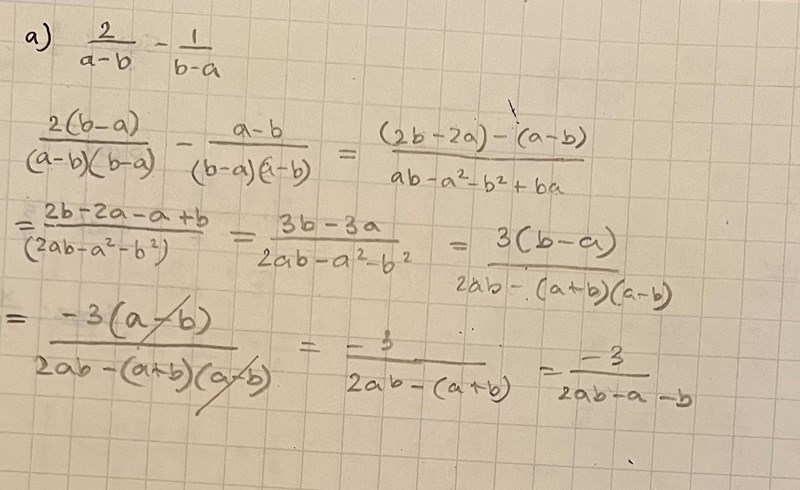 a) 2/(a-b) - 1/(b-a)
2(b-a)/((a-b)(b-a)) - (a-b)/((b-a)(a-b)) = ((2b-2a)-(a-b))/(ab-a²-b²+ba)
= (2b-2a-a+b)/(2ab-a²-b²) = (3b-3a)/(2ab-a²-b²) = 3(b-a)/(2ab-(a+b)(a-b))
= -3(a-b)/(2ab-(a+b)(a-b)) = -3/(2ab-(a+b)) = -3/(2ab-a-b)